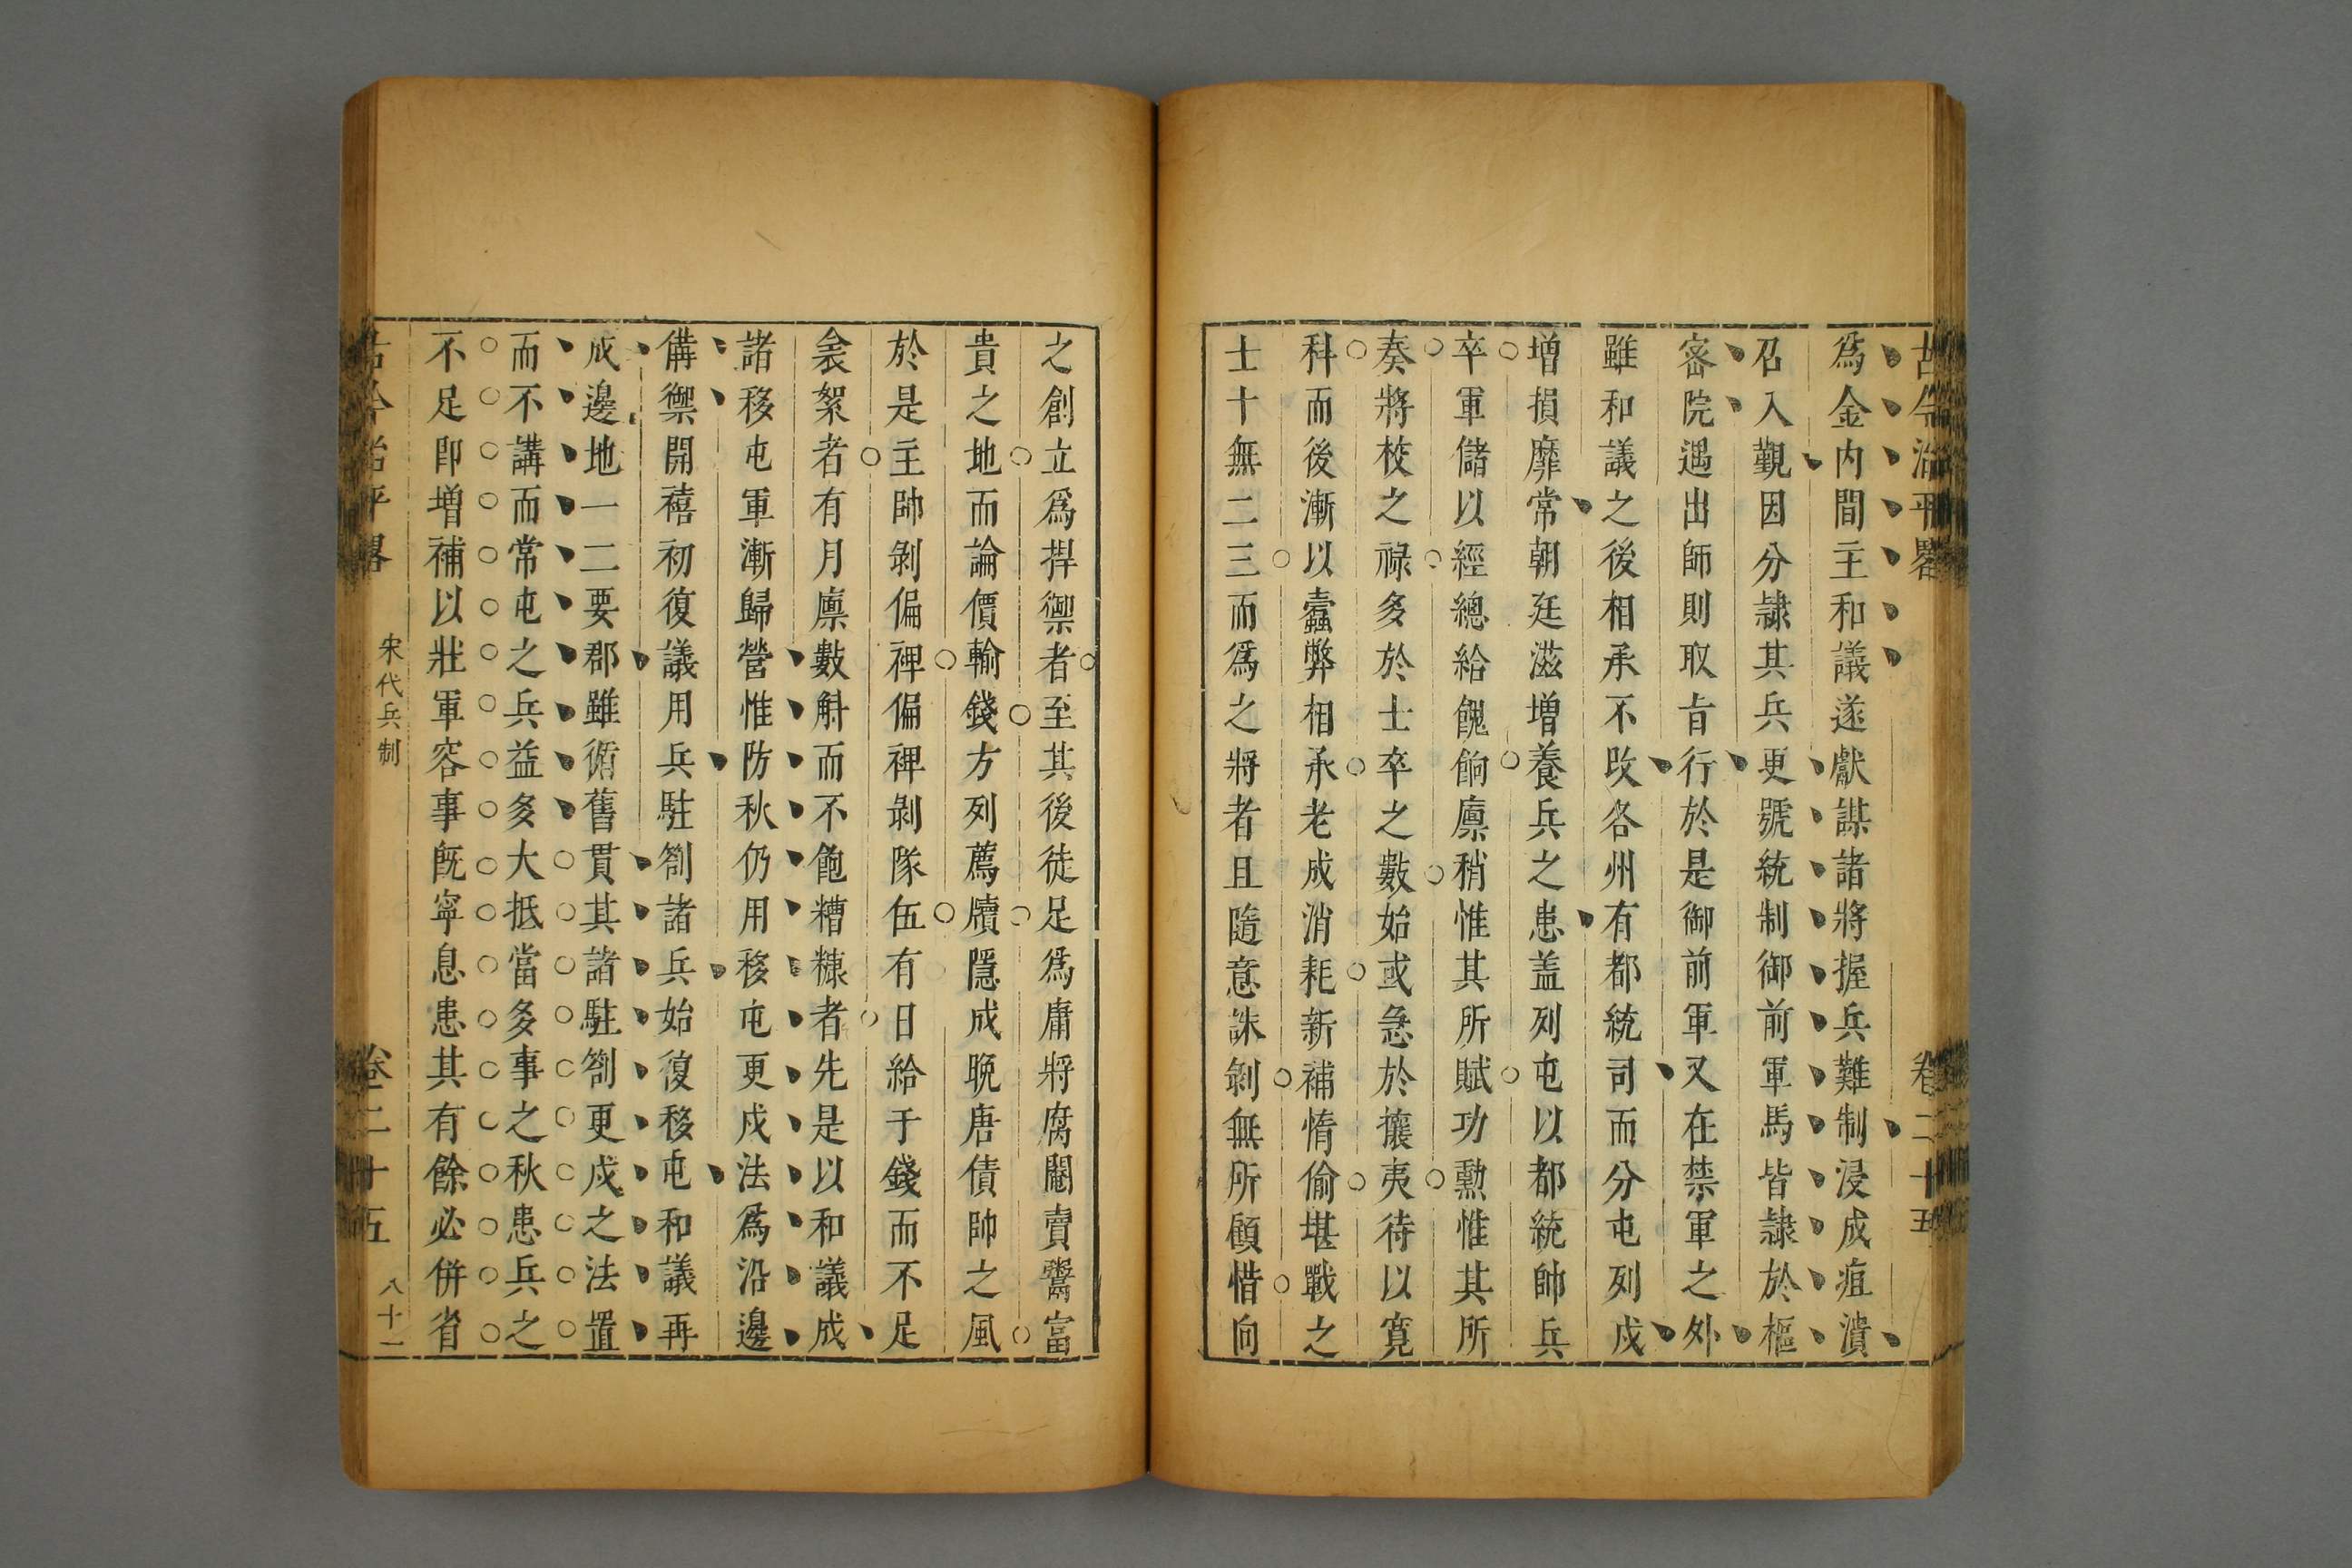 古今治平畧 卷二十五
爲金内間主和議遂獻謀諸將握兵難制浸成疽潰
召入覲因分隷其兵更號統制御前軍馬皆隷於樞
宻院遇出師則取㫖行於是御前軍又在禁軍之外
雖和議之後相承不改各州有都統司而分屯列戍
增損靡常朝廷滋增養兵之患盖列屯以都統帥兵
卒軍儲以經總給餽餉廪稍惟其所賦功勲惟其所
奏將校之禄多於士卒之數始或急於攘夷待以寛
科而後漸以蠹弊相承老成消耗新補惰偷堪戰之
士十無二三而爲之將者且隨意誅剝無所顧惜向
之創立爲捍禦者至其後徒足爲庸將腐閹賣鬻富
貴之地而論價輸錢方列薦牘隱成晩唐債帥之風
於是主帥剝偏裨偏裨剝隊伍有日給于錢而不足
衾絮者有月廪數斛而不飽糟糠者先是以和議成
諸移屯軍漸歸營惟防秋仍用移屯更戍法爲沿邊
備禦開禧初復議用兵駐劄諸兵始復移屯和議再
成邊地一二要郡雖循舊貫其諸駐劄更戍之法置
而不講而常屯之兵益多大抵當多事之秋患兵之
不足即增補以壯軍容事旣寜息患其有餘必併省
古今治平畧 宋代兵制 卷二十五 八十一